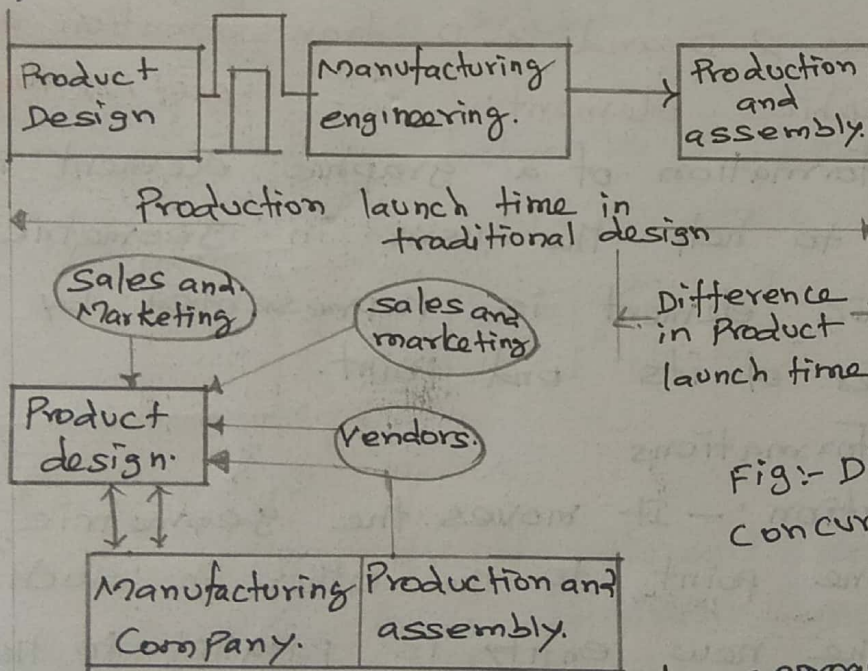 Product
Design
Manufacturing
engineering.
Production
and
assembly.
Production launch time in
traditional design
Sales and
Marketing
Sales and
marketing
Difference
in Product
launch time
Product
design.
Vendors.
Fig:- D
Concur
Manufacturing
Company.
Production and
assembly.